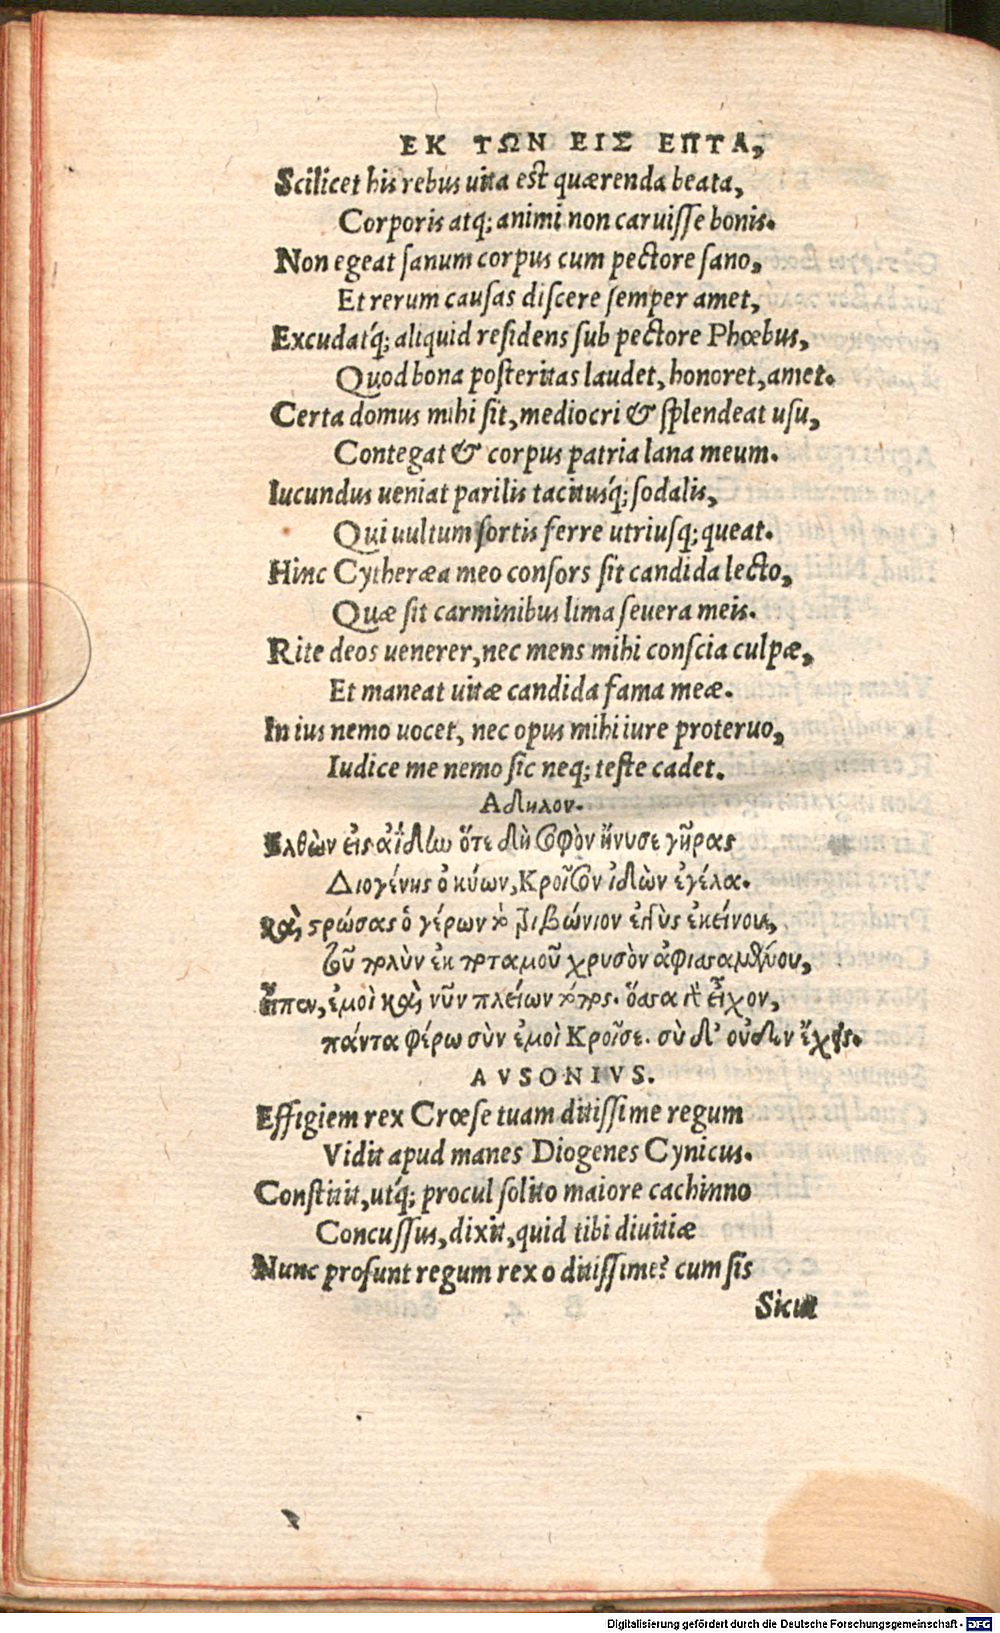 ΕΚ ΤΩΝ ΕΙΣ ΕΠΤΑ,
Scilicet his rebus uita est quærenda beata,
Corporis atq; animi non caruisse bonis.
Non egeat sanum corpus cum pectore sano,
Et rerum causas discere semper amet,
Excudatq́; aliquid residens sub pectore Phœbus,
Quod bona posteritas laudet, honoret, amet.
Certa domus mihi sit, mediocri & splendeat usu,
Contegat & corpus patria lana meum.
Iucundus ueniat parilis tacitusq́; sodalis,
Qui uultum sortis ferre utriusq; queat.
Hinc Cytheræa meo consors sit candida lecto,
Quæ sit carminibus lima seuera meis.
Rite deos uenerer, nec mens mihi conscia culpæ,
Et maneat uitæ candida fama meæ.
In ius nemo uocet, nec opus mihi iure proteruo,
Iudice me nemo sic neq; teste cadet.
Αδηλον.
Ελθὼν εἰς ἀΐδίω ὅτε δὴ σοφὸν ἤνυσε γῆρας
Διογένης ὁ κύων, Κροῖσον ἰδὼν ἐγέλα.
καὶ στρώσας ὁ γέρων τὸ τριβώνιον ἐγγὺς ἐκείνου,
τοῦ πολὺν ἐκ ποταμοῦ χρυσὸν ἀφυσσαμένου,
εἶπεν, ἐμοὶ καὶ νῦν πλείων τόπος. ὅσσα γὰρ εἶχον,
πάντα φέρω σὺν ἐμοὶ Κροῖσε. σὺ δ᾽ οὐδὲν ἔχεις.
AVSONIVS.
Effigiem rex Crœse tuam ditissime regum
Vidit apud manes Diogenes Cynicus.
Constitit, utq́; procul solito maiore cachinno
Concussus, dixit, quid tibi diuitiæ
Nunc prosunt regum rex o ditissime? cum sis
Sicut
Digitalisierung gefördert durch die Deutsche Forschungsgemeinschaft - DFG